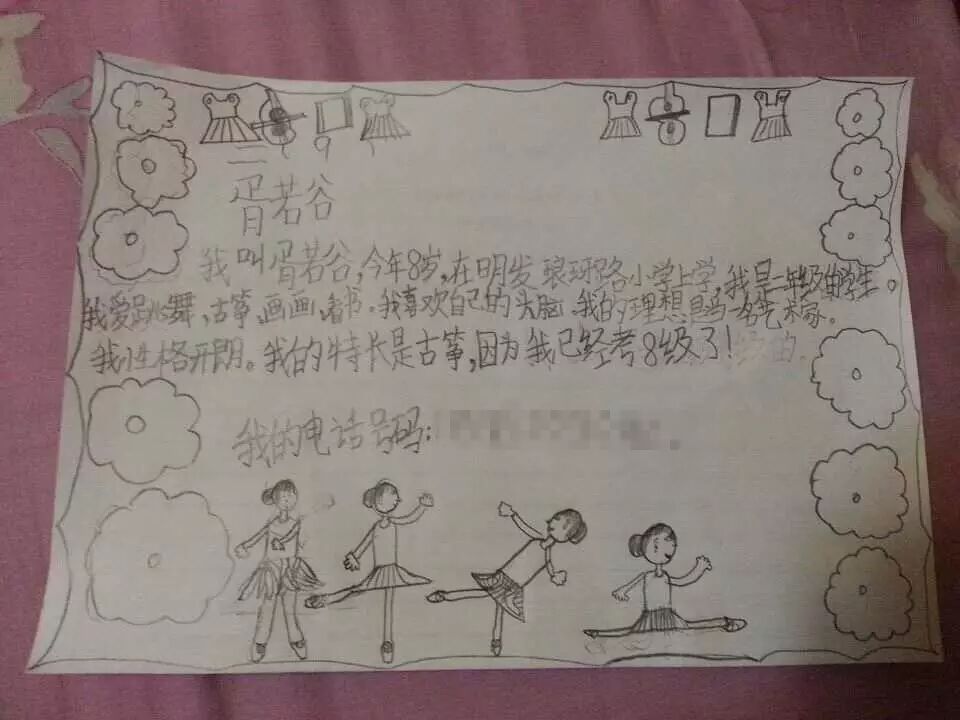 胥若谷
我叫胥若谷,今年8岁,在明发琅玡路小学上学,我是二年级的学生。
我爱跳舞、古筝、画画、看书。我喜欢自己的头脑。我的理想是当一名艺术家。
我性格开朗。我的特长是古筝,因为我已经考8级了!
我的电话号码: